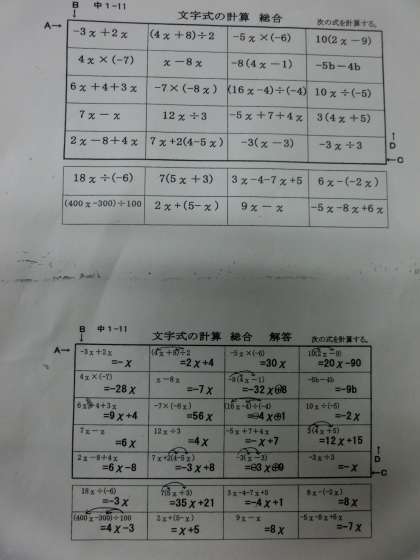 B 中1-11
A→ 文字式の計算 総合 次の式を計算する。
-3x+2x (4x+8)÷2 -5x×(-6) 10(2x-9)
4x×(-7) x-8x -8(4x-1) -5b-4b
6x+4+3x -7×(-8x) (16x-4)÷(-4) 10x÷(-5)
7x-x 12x÷3 -5x+7+4x 3(4x+5)
2x-8+4x 7x+2(4-5x) -3(x-3) -3x÷3
D
C
18x÷(-6) 7(5x+3) 3x-4-7x+5 6x-(-2x)
(400x-300)÷100 2x+(5-x) 9x-x -5x-8x+6x
B 中1-11
A→ 文字式の計算 総合 解答 次の式を計算する。
-3x+2x (4x+8)÷2 -5x×(-6) 10(2x-9)
=-x =2x+4 =30x =20x-90
4x×(-7) x-8x -8(4x-1) -5b-4b
=-28x =-7x =-32x+8 =-9b
6x+4+3x -7×(-8x) (16x-4)÷(-4) 10x÷(-5)
=9x+4 =56x =-4x+1 =-2x
7x-x 12x÷3 -5x+7+4x 3(4x+5)
=6x =4x =-x+7 =12x+15
2x-8+4x 7x+2(4-5x) -3(x-3) -3x÷3
=6x-8 =-3x+8 =-3x+9 =-x
D
C
18x÷(-6) 7(5x+3) 3x-4-7x+5 6x-(-2x)
=-3x =35x+21 =-4x+1 =8x
(400x-300)÷100 2x+(5-x) 9x-x -5x-8x+6x
=4x-3 =x+5 =8x =-7x